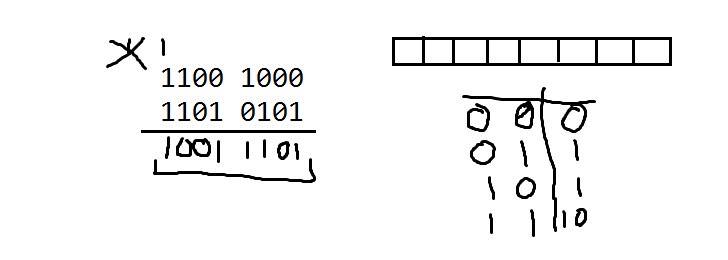 1
1100 1000
1101 0101
1001 1101
0 0 0
0 1 1
1 0 1
1 1 10